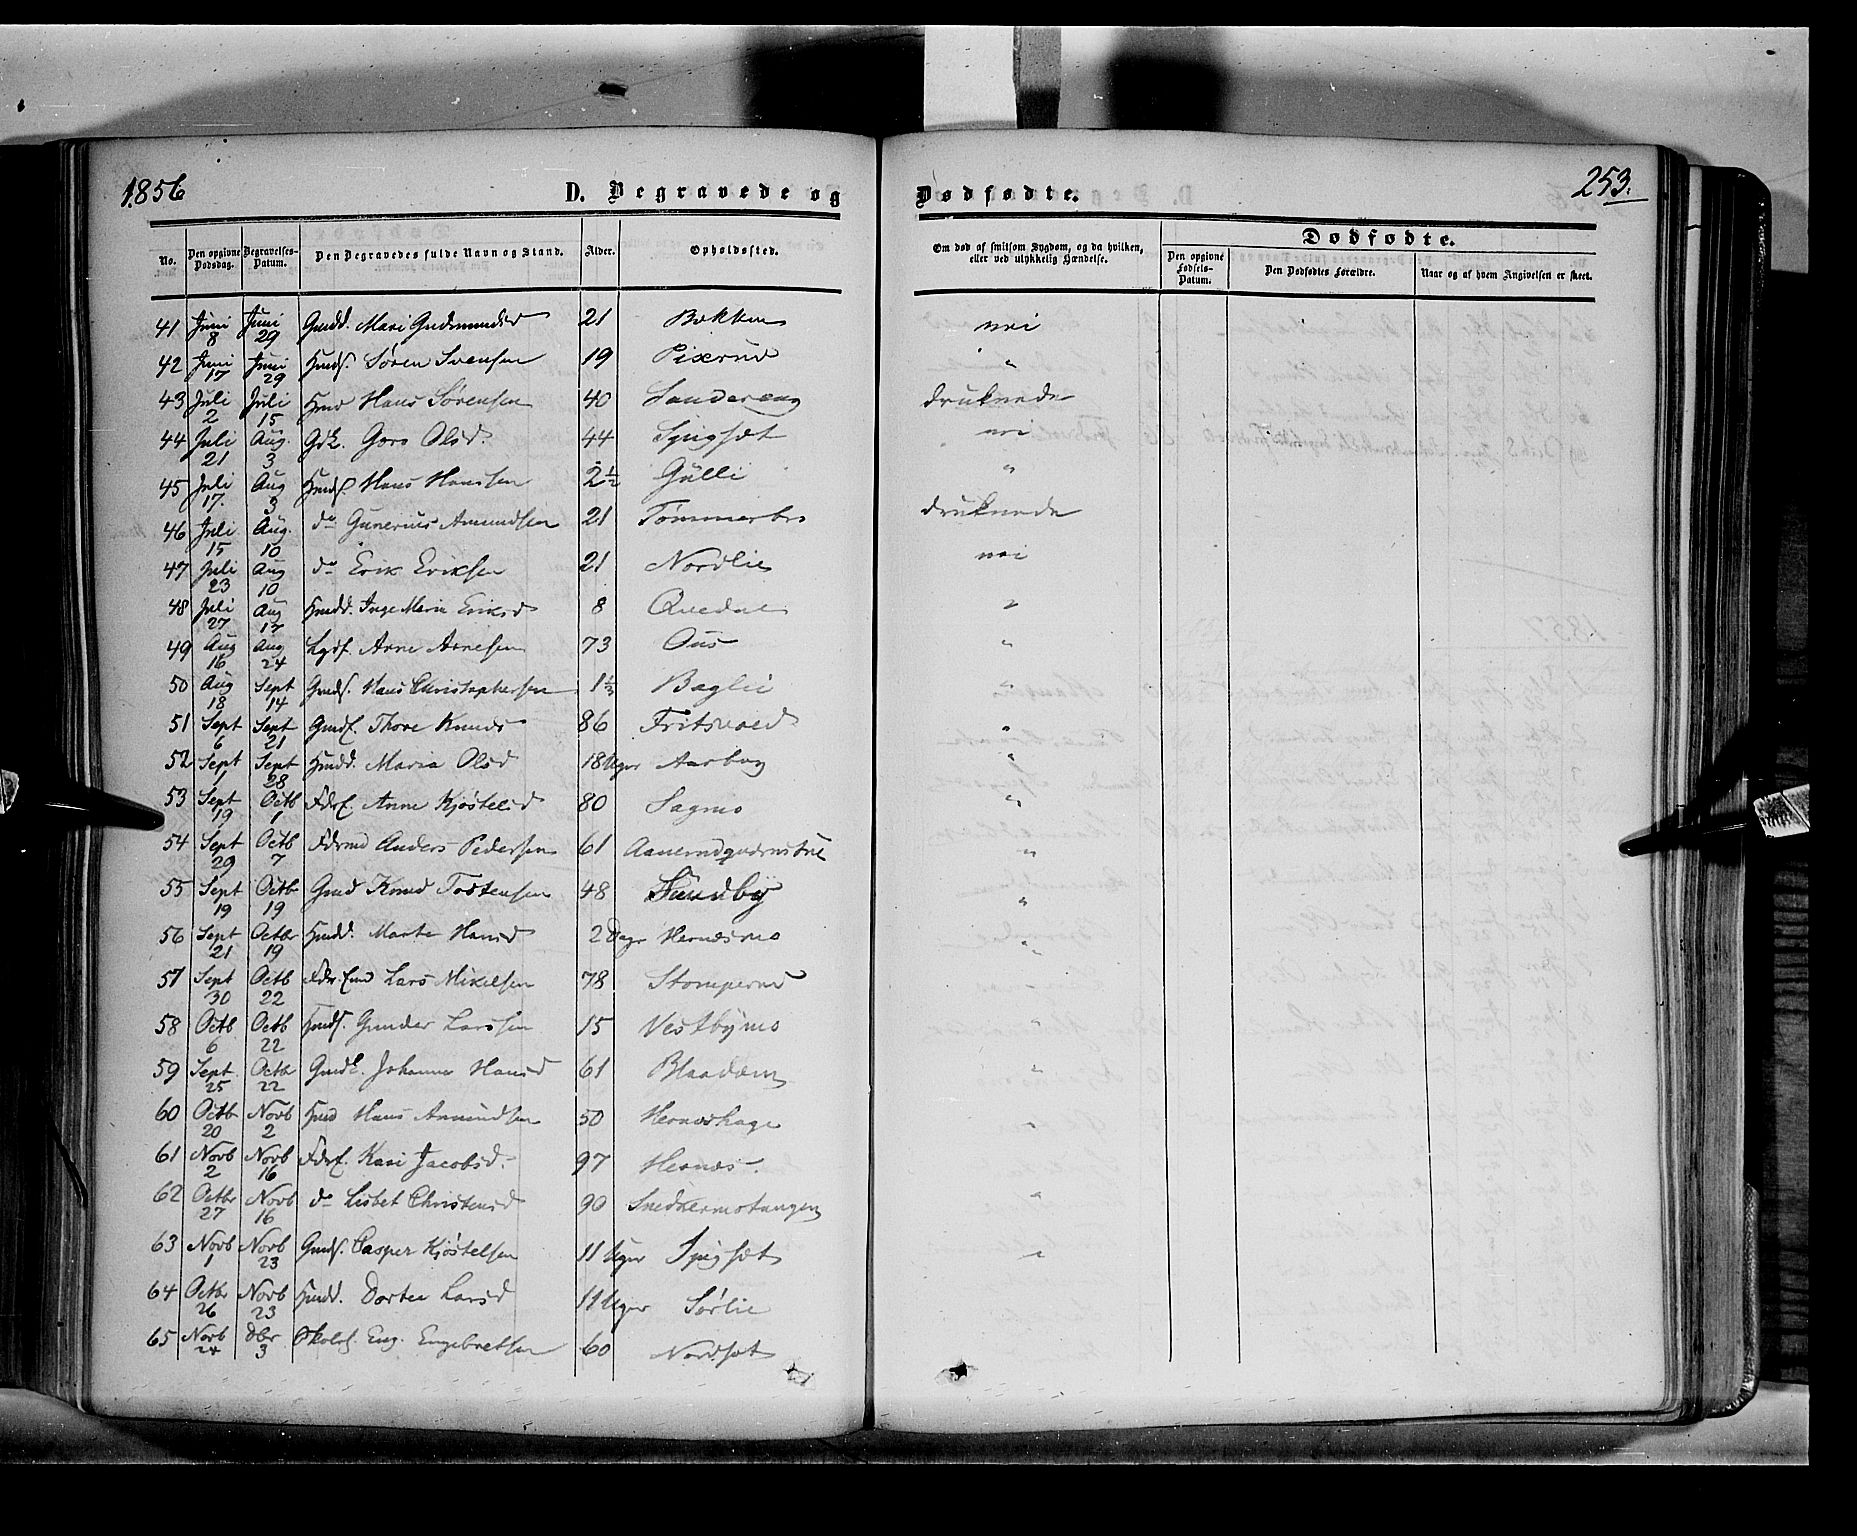 1856 D. Begravede og Dødfødte. 253.
No. Den opgivne Dødsdag. Begravelses-Datum. Den Begravedes fulde Navn og Stand. Alder. Opholdssted. Om død af smitsom Sygdom, og da hvilken, eller ved ulykkelig Hændelse. Dødfødte. Den opgivne Fødsels-Datum. Den Dødfødtes Forældre. Naar og af hvem Angivelsen er skeet.
41 Juni 8 Juni 29 Gmdd. Mari Gudmundsd 21 Bekken nei
42 Juni 17 Juni 29 Hmds. Søren Svensen 19 Pixrud "
43 Juli 2 Juli 15 Hmd Hans Sørensen 40 Sandereng druknede
44 Juli 21 Aug. 3 Gdk. Goro Olsd. 44 Spigsæt nei
45 Juli 17. Aug 3 Hmds Hans Hansen 2½ Gülli "
46 Juli 15 Aug. 10 do Gunerius Amundsen 21 Tømmerbr druknede
47 Juli 23 Aug 10 do Erik Eriksen 21 Nordlie nei
48 Juli 27 Aug 17 Hmdd. Inge Marie Eriksd 8 Quedal "
49 Aug 16 Aug 24 Lgdf. Arne Arnesen 73 Ous "
50 Aug 18 Sept 14 Gmds. Hans Christophersen 1⅓ Baglie "
51 Sept 6 Sept 21 Thore Knuds 86 Fritsvold "
52 Sept 1 Sept 28 Hmdd. Maria Olsd 18 Uger Aasbog "
53 Sept 19 Octb 1 Fdrf. Anne Kjøstelsd 80 Sagmo "
54 Sept 29 Octb 7 Fdrmd Anders Pedersen 61 "
55 Sept 19 Octbr 19 Gmd Knud Tostensen 48 Sundby "
56 Sept 21 Octbr 19 Hmdd. Marte Hansd 2 Dage Hernæsmo "
57 Sept 30 Octb 22 Lars Mikelsen 78 Stomperud "
58 Octb 6 Octb 22 Hmds. Gunder Larssen 15 Vestbymo "
59 Sept 25 Octbr 22 Gmdk. Johanne Hansd 61 Blaadden "
60 Octbr 20 Novb 2 Hmd Hans Amundsen 50 Hernæshage "
61 Novb 2 Novb 16 Fdrf. Kari Jacobsd. 97 Hernæs.
62 Octbr 27 Novb 16 do Lisbet Christensd 90 Snedkermotangen "
63 Novb 1 Novb 23 Gmds. Casper Kjøstelsen 11 Uger Spigsæt "
64 Octbr 26 Novb 23 Hmdd. Dortea Larsd 11 Uger Sørlie
65 Novb 24 Dbr 3 Eng. Engebretsen 60 Nordsæt